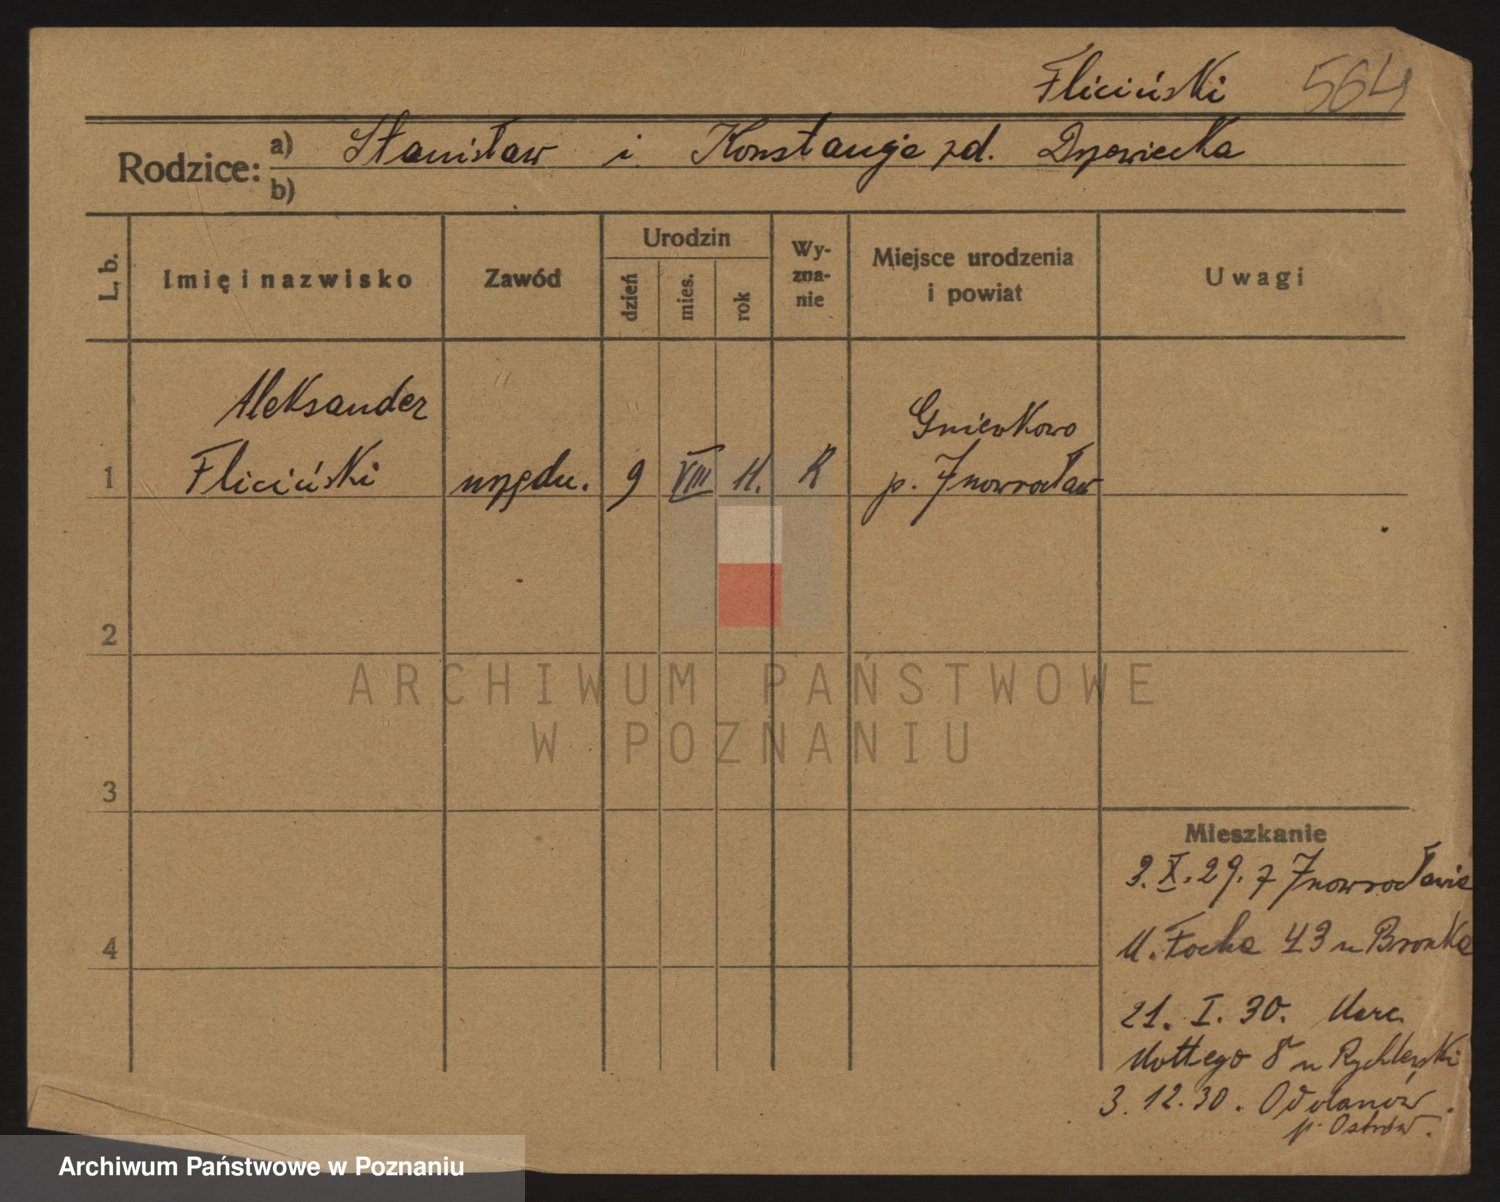 Fliciński 564
Rodzice: a) Stanisław i Konstancja zd.
b)
L. b. Imię i nazwisko Zawód Urodzin dzień mies. rok Wy-zna-nie Miejsce urodzenia i powiat Uwagi
Aleksander
1 Fliciński urzędn. 9 VIII 11. K Gniewkowo
p. Inowrocław
2
3
4
Mieszkanie
3. X. 29. z Inowrocławia
M. Focha 43 u Bronka
21. I. 30. Marc.
Mottego 8 u
3. 12. 30. Odolanów
p. Ostrów.
ARCHIWUM PAŃSTWOWE
W POZNANIU
Archiwum Państwowe w Poznaniu